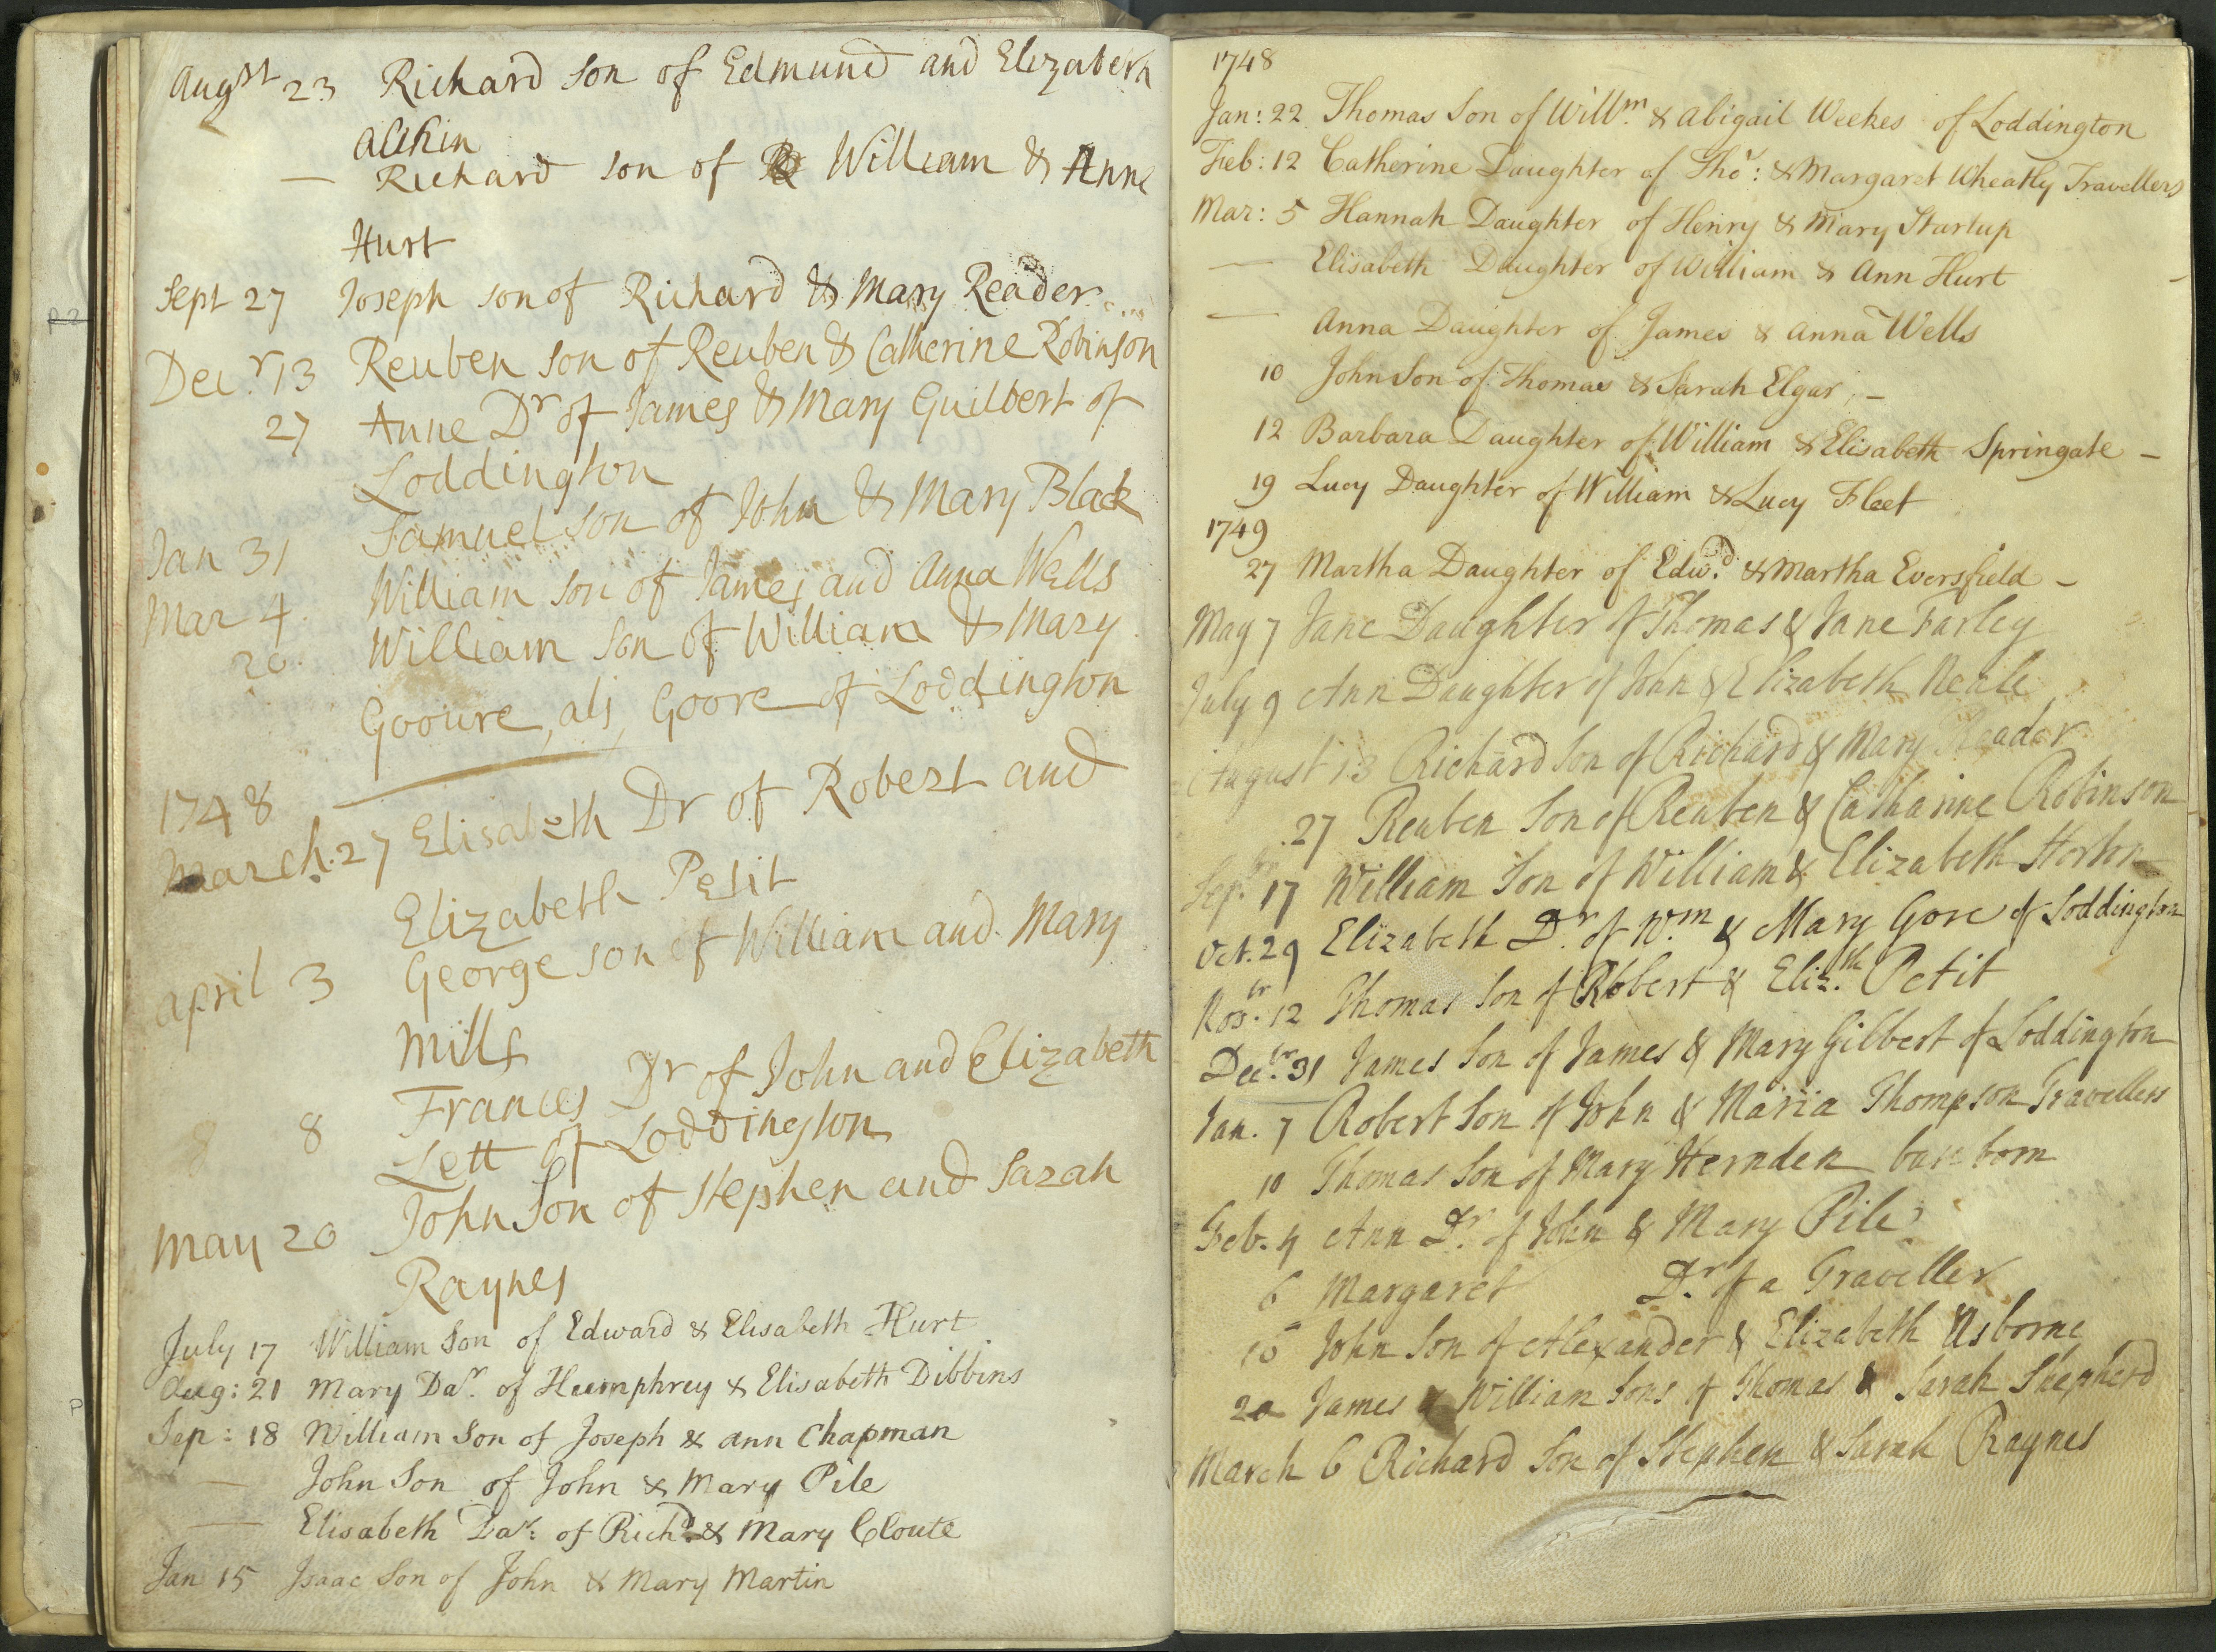 Augst 23 Richard son of Edmund and Elizabeth
Alckin
— Richard son of William & Anne
Hurt
Sept 27 Joseph son of Richard & Mary Reader
Decr. 13 Reuben son of Reuben & Catherine Robinson
27 Anne Dr of James & Mary Guilbert of
Loddington
Jan 31 Samuel son of John & Mary Black
Mar 4. William son of James and Anna Wells
20. William son of William & Mary
Gooure, als, Goore of Loddington
1748
March. 27 Elisabeth Dr of Robert and
Elizabeth Petit
April 3 George son of William and Mary
Mills
8 8 Frances Dr of John and Elizabeth
Lett of Loddington
May 20 John Son of Stephen and Sarah
Raynes
July 17 William Son of Edward & Elisabeth Hurt
Aug: 21 Mary Dar. of Humphrey & Elisabeth Dibbins
Sep: 18 William Son of Joseph & Ann Chapman
— John Son of John & Mary Pile
— Elisabeth Dar: of Richd. & Mary Cloute
Jan 15 Isaac Son of John & Mary Martin
1748
Jan: 22 Thomas Son of Willm. & Abigail Weekes of Loddington
Feb: 12 Catherine Daughter of Thos: & Margaret Wheatly Travellers
Mar: 5 Hannah Daughter of Henry & Mary Startup
— Elisabeth Daughter of William & Ann Hurt —
— Anna Daughter of James & Anna Wells
10 John Son of Thomas & Sarah Elgar, —
12 Barbara Daughter of William & Elisabeth Springate —
19 Lucy Daughter of William & Lucy Fleet
1749
27 Martha Daughter of Edwd. & Martha Eversfield —
May 7 Jane Daughter of Thomas & Jane Farley
July 9 Ann Daughter of John & Elizabeth Neale
August 13 Richard Son of Richard & Mary Reader
27 Reuben Son of Reuben & Catharine Robinson
Sepbr. 17 William Son of William & Elizabeth Horton
Oct. 29 Elizabeth Dr. of Wm. & Mary Gore of Loddington
Novbr. 12 Thomas Son of Robert & Elizth. Petit
Decbr. 31 James Son of James & Mary Gilbert of Loddington
Jan. 7 Robert Son of John & Maria Thompson Travellers
10 Thomas Son of Mary Hernden base born
Feb. 4 Ann Dr. of John & Mary Pile
6 Margaret Dr. of a Traveller
15 John Son of Alexander & Elizabeth Usborne
20 James & William Sons of Thomas & Sarah Shepherd
March 6 Richard Son of Stephen & Sarah Raynes